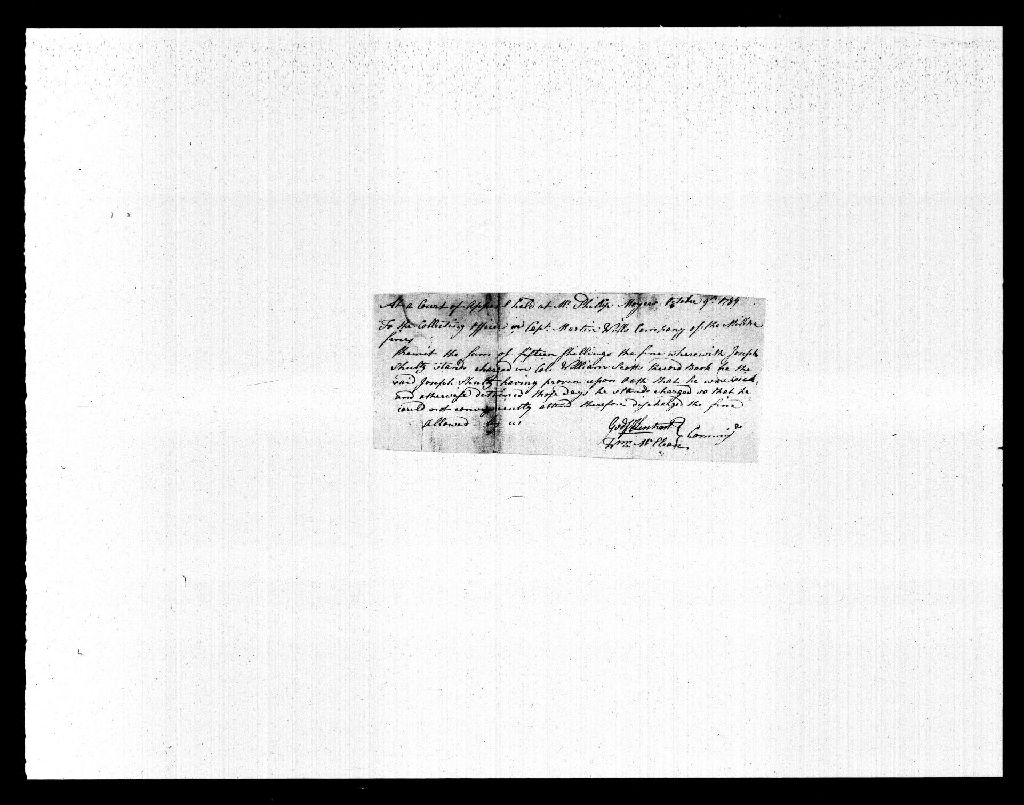 At a Court of Appeal held at Mr. Philip Moyers October 9th 1789
To the Collecting Officer on Capt. Martin Company of the Militia
fines
Remit the sum of fifteen Shillings the fine wherewith Joseph
Shultz stands charged in Col. William Scotts Record Book he the
said Joseph Shultz having proven upon Oath that he was sick,
and otherwise detained those Days he stands charged so that he
could not conveniently attend therefore discharge the fine
allowed by us
Wm. McClean